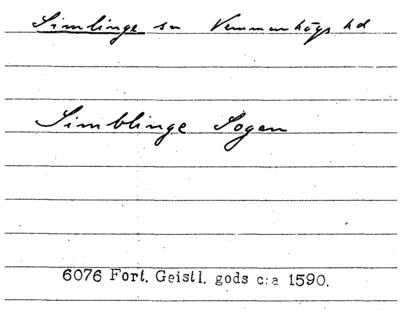 Simlinge sn Vemmenhögs hd
Simblinge Sogen
6076 Fort. Geistl. gods c:a 1590.